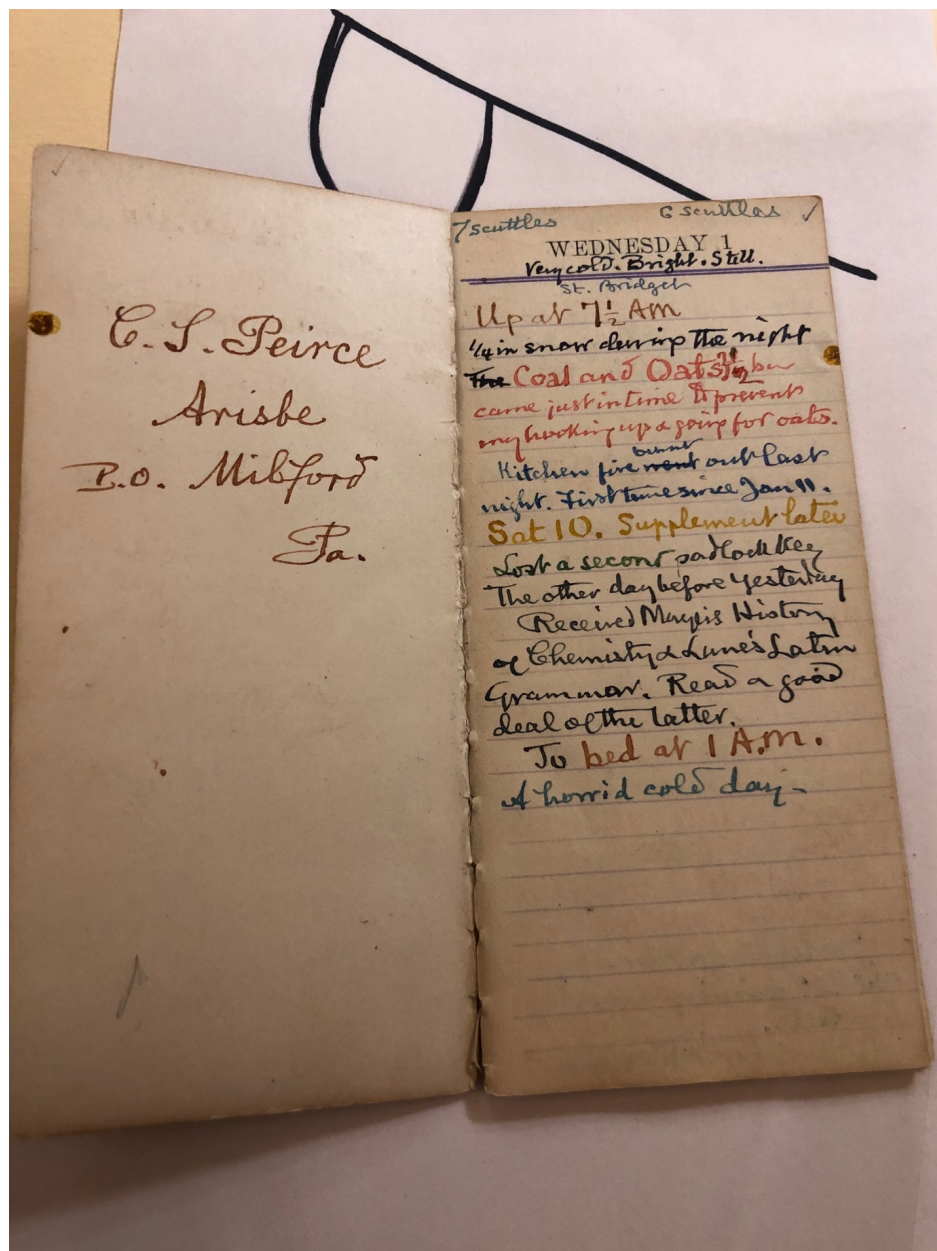 C. S. Peirce
Arisbe
P.O. Milford
Pa.
7 scuttles
6 scuttles
WEDNESDAY 1
Very cold. Bright. Still.
St. Bridget
Up at 7½ AM
¼ in snow during the night
The Coal and Oats
came just in time to prevent
my hooking up & going for oats.
burnt
Kitchen fire went out last
night. First time since Jan 11.
Sat 10. Supplement later
Lost a second padlock key
The other day before yesterday
Received History
of Chemistry & Lane's Latin
Grammar. Read a good
deal of the latter.
To bed at 1 A.M.
A horrid cold day –